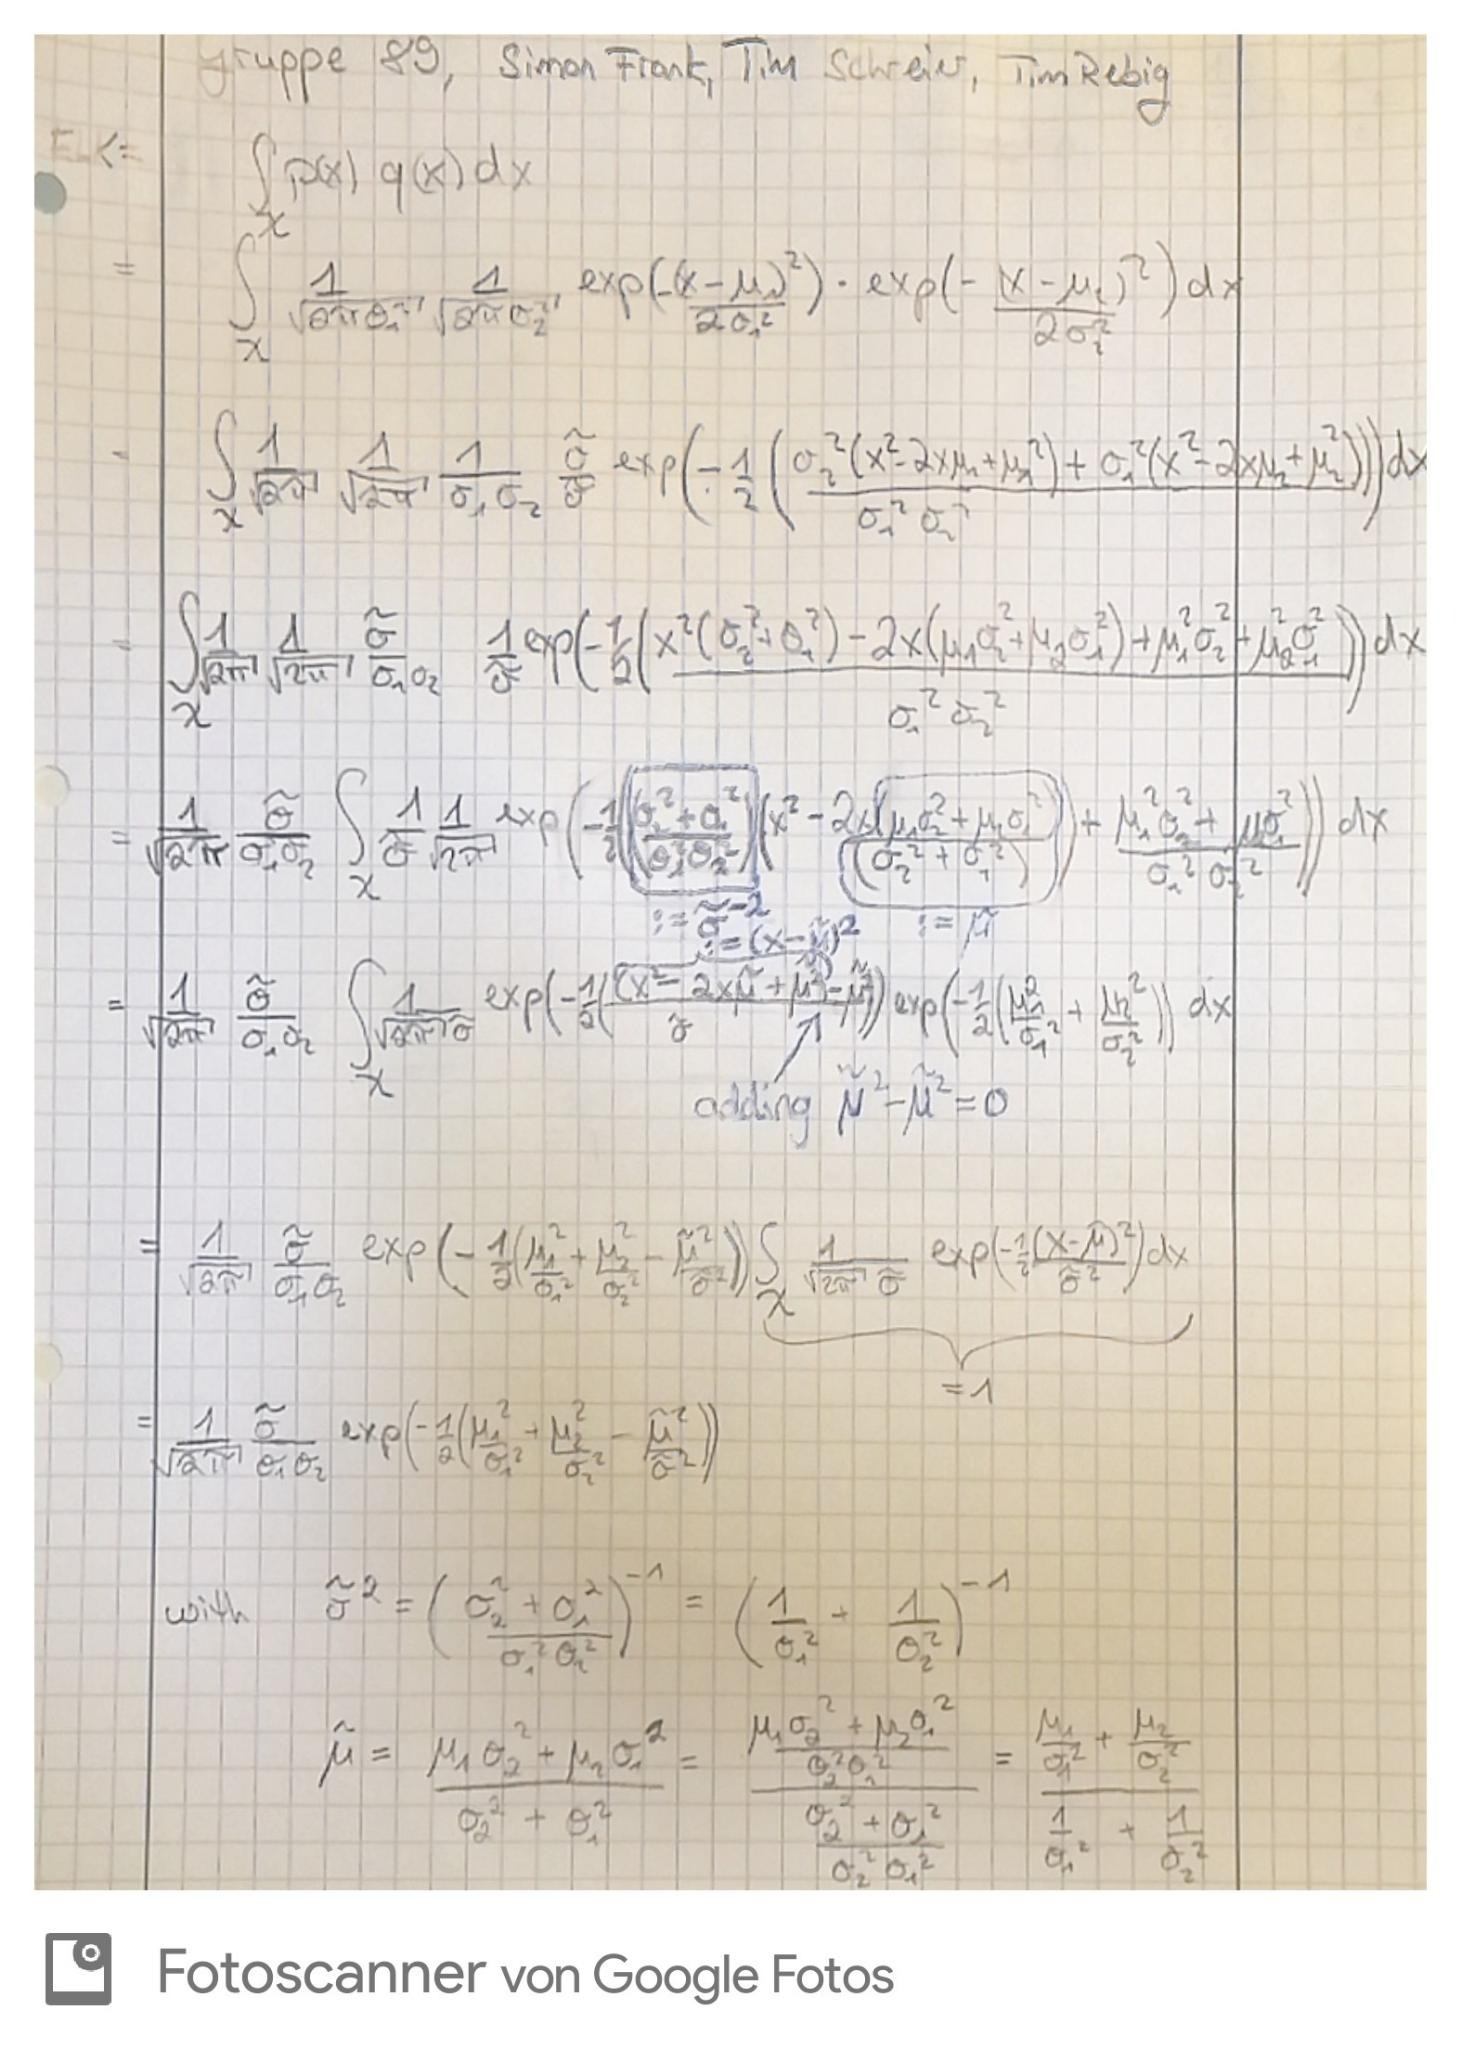 Gruppe 89, Simon Frank, Tim Schreier, Tim Rebig
∫_X p(x) q(x) dx
= ∫_X 1/√(2πσ₁²) 1/√(2πσ₂²) exp(-(x-μ₁)²/2σ₁²) · exp(-(x-μ₂)²/2σ₂²) dx
= ∫_X 1/√2π 1/√2π 1/(σ₁σ₂) σ̃/σ̃ exp(-1/2 ((σ₂²(x²-2xμ₁+μ₁²) + σ₁²(x²-2xμ₂+μ₂²))/(σ₁²σ₂²))) dx
= ∫_X 1/√2π 1/√2π σ̃/(σ₁σ₂) 1/σ̃ exp(-1/2 ((x²(σ₂²+σ₁²) - 2x(μ₁σ₂²+μ₂σ₁²) + μ₁²σ₂² + μ₂²σ₁²)/(σ₁²σ₂²))) dx
= 1/√2π σ̃/(σ₁σ₂) ∫_X 1/σ̃ 1/√2π exp(-1/2 (((σ₂²+σ₁²)/(σ₁²σ₂²)) (x² - 2x (μ₁σ₂²+μ₂σ₁²)/(σ₂²+σ₁²)) + (μ₁²σ₂² + μσ₁²)/(σ₁²σ₂²))) dx
:= σ̃⁻² := μ̃
:= (x-μ̃)²
= 1/√2π σ̃/(σ₁σ₂) ∫_X 1/(√2π σ̃) exp(-1/2 (((x² - 2xμ̃ + μ̃²) - μ̃²)/σ̃)) exp(-1/2 (μ₁²/σ₁² + μ₂²/σ₂²)) dx
adding μ̃² - μ̃² = 0
= 1/√2π σ̃/(σ₁σ₂) exp(-1/2 (μ₁²/σ₁² + μ₂²/σ₂² - μ̃²/σ̃²)) ∫_X 1/(√2π σ̃) exp(-1/2 (x-μ̃)²/σ̃²) dx
= 1
= 1/√2π σ̃/(σ₁σ₂) exp(-1/2 (μ₁²/σ₁² + μ₂²/σ₂² - μ̃²/σ̃²))
with σ̃² = ((σ₂² + σ₁²)/(σ₁²σ₂²))⁻¹ = (1/σ₁² + 1/σ₂²)⁻¹
μ̃ = (μ₁σ₂² + μ₂σ₁²)/(σ₂² + σ₁²) = ((μ₁σ₂² + μ₂σ₁²)/(σ₂²σ₁²))/((σ₂² + σ₁²)/(σ₂²σ₁²)) = (μ₁/σ₁² + μ₂/σ₂²)/(1/σ₁² + 1/σ₂²)
Fotoscanner von Google Fotos